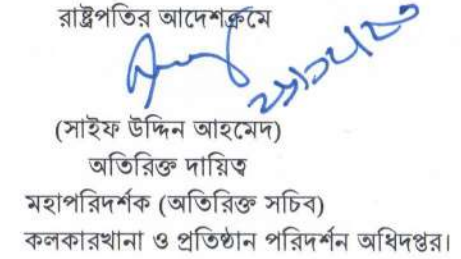 রাষ্ট্রপতির আদেশক্রমে
(সাইফ উদ্দিন আহমেদ)
অতিরিক্ত দায়িত্ব
মহাপরিদর্শক (অতিরিক্ত সচিব)
কলকারখানা ও প্রতিষ্ঠান পরিদর্শন অধিদপ্তর।